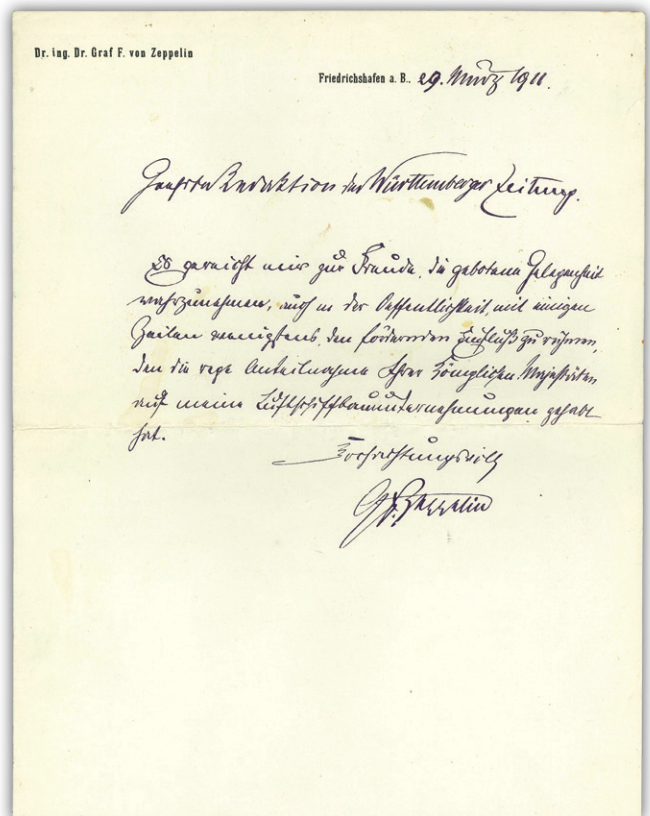 Dr. ing. Dr. Graf F. von Zeppelin
Friedrichshafen a. B., 29. März 1911.
Geehrte Redaktion der Württemberger Zeitung.
Es gereicht mir zur Freude, die gebotene Gelegenheit
wahrzunehmen, auch in der Oeffentlichkeit, mit einigen
Zeilen wenigstens, den fördernden Einfluß zu rühmen,
den die rege Anteilnahme Ihrer Königlichen Majestäten
auf meine Luftschiffbauunternehmungen gehabt
hat.
Hochachtungsvoll
Gf. Zeppelin